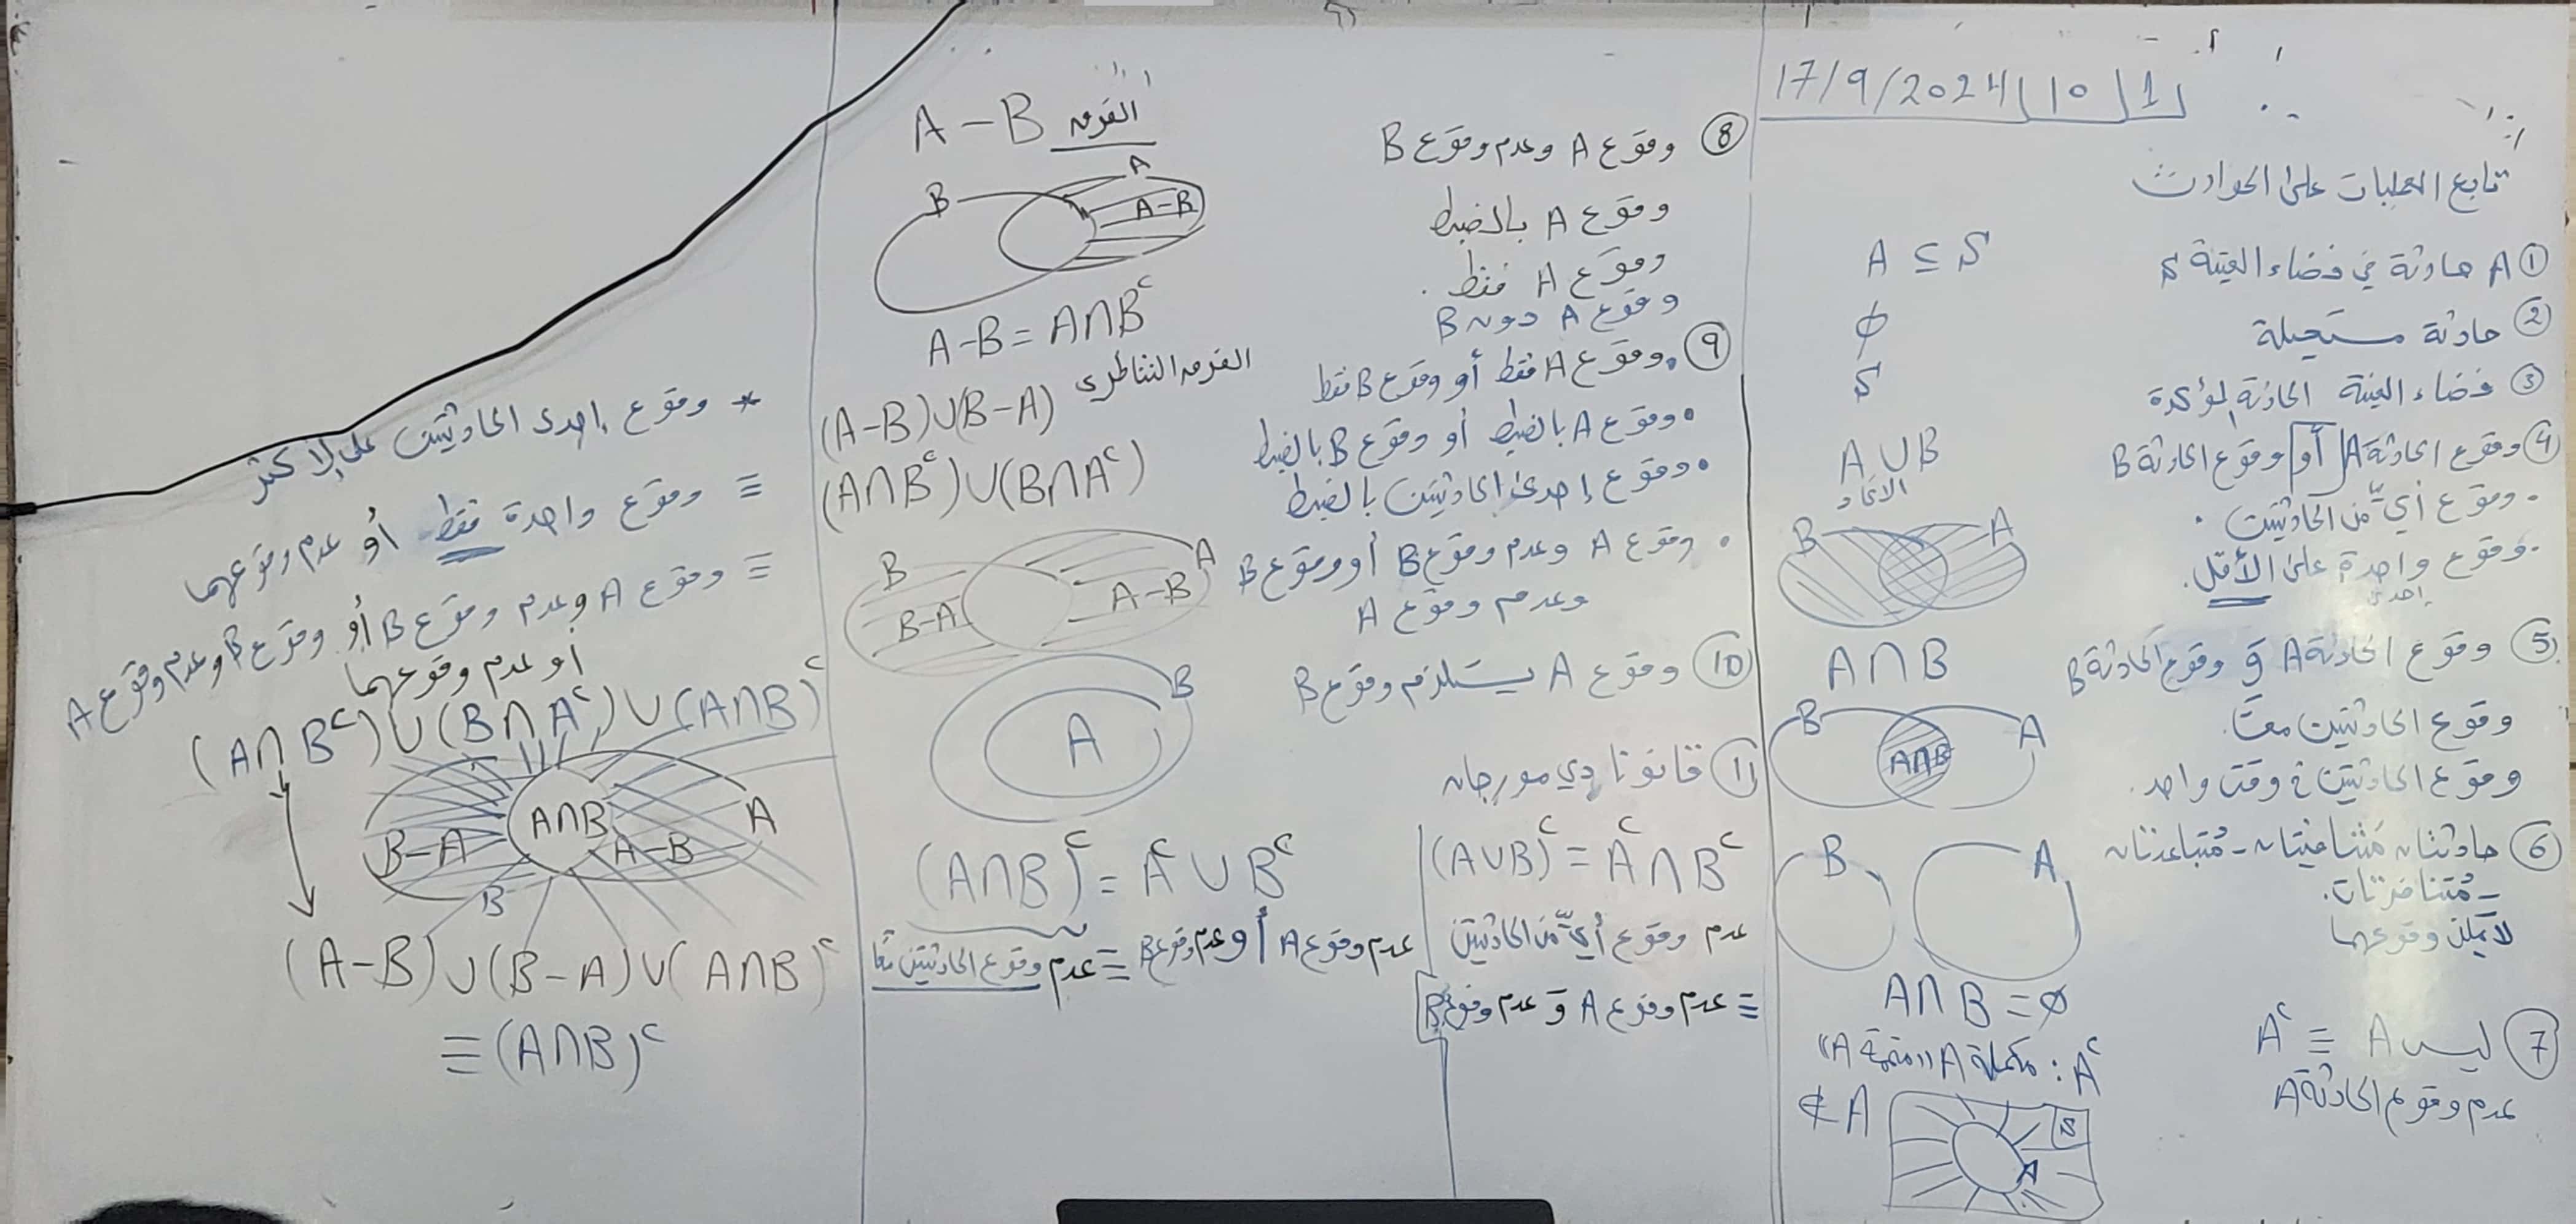 17/9/2024 | 10 | 1
تابع العمليات على الحوادث
① A حادثة في فضاء العينة S
A ⊆ S
② حادثة مستحيلة
ϕ
③ فضاء العينة الحادثة المؤكدة
S
④ وقوع الحادثة A أو وقوع الحادثة B
A∪B
الاتحاد
. وقوع أيّ من الحادثتين .
. وقوع واحدة على الأقل.
إحدى
B A
⑤ وقوع الحادثة A و وقوع الحادثة B
A∩B
وقوع الحادثتين معاً.
وقوع الحادثتين في وقت واحد.
B A∩B A
⑥ حادثتان مُتنافيتان - مُتباعدتان
- مُتنافرتان.
لا يمكن وقوعهما
B A
A∩B = ∅
⑦ ليس A ≡ Aᶜ
عدم وقوع الحادثة A
Aᶜ : مكملة A "متممة A"
∉ A
S
A
⑧ وقوع A وعدم وقوع B
وقوع A بالضبط
وقوع A فقط .
وقوع A دون B
الفرق A − B
B A A−B
A−B = A∩Bᶜ
⑨ • وقوع A فقط أو وقوع B فقط
• وقوع A بالضبط أو وقوع B بالضبط
• وقوع إحدى الحادثتين بالضبط
• وقوع A وعدم وقوع B أو وقوع B
وعدم وقوع A
الفرق التناظري
(A−B)∪(B−A)
(A∩Bᶜ)∪(B∩Aᶜ)
B A
B−A A−B
⑩ وقوع A يستلزم وقوع B
B
A
⑪ قانونا دي مورجان
(A∪B)ᶜ = Aᶜ∩Bᶜ
عدم وقوع أيّ من الحادثتين
≡ عدم وقوع A و عدم وقوع B
(A∩B)ᶜ = Aᶜ∪Bᶜ
عدم وقوع A أو عدم وقوع B ≡ عدم وقوع الحادثتين معًا
* وقوع إحدى الحادثتين على الأكثر
≡ وقوع واحدة فقط أو عدم وقوعهما
≡ وقوع A وعدم وقوع B أو وقوع B وعدم وقوع A
أو عدم وقوعهما
(A∩Bᶜ)∪(B∩Aᶜ)∪(A∩B)ᶜ
B−A A∩B A−B A
B
(A−B)∪(B−A)∪(A∩B)ᶜ
≡ (A∩B)ᶜ